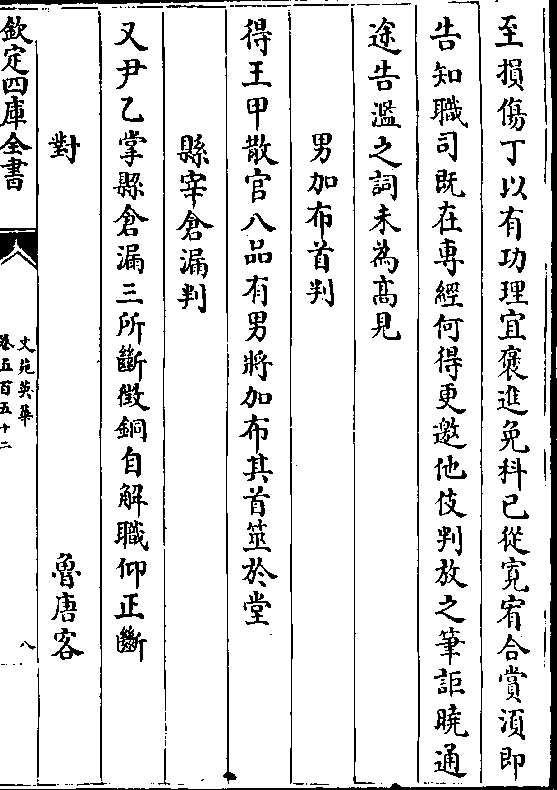 至損傷丁以有功理宜褒進免科已從寛宥合賞須即
告知職司既在專經何得更邀他伎判放之筆詎曉通
途告濫之詞未為髙見
男加布首判
得王甲散官八品有男將加布其首筮於堂
縣宰倉漏判
又尹乙掌縣倉漏三所斷徴銅自解職仰正斷
對 魯唐客
欽定四庫全書
文苑英華
卷五百五十二
八